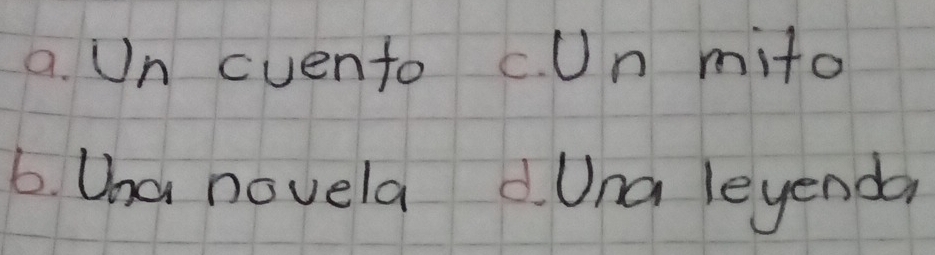 a. Un cuento c. Un mito
b. Una novela d. Una leyenda